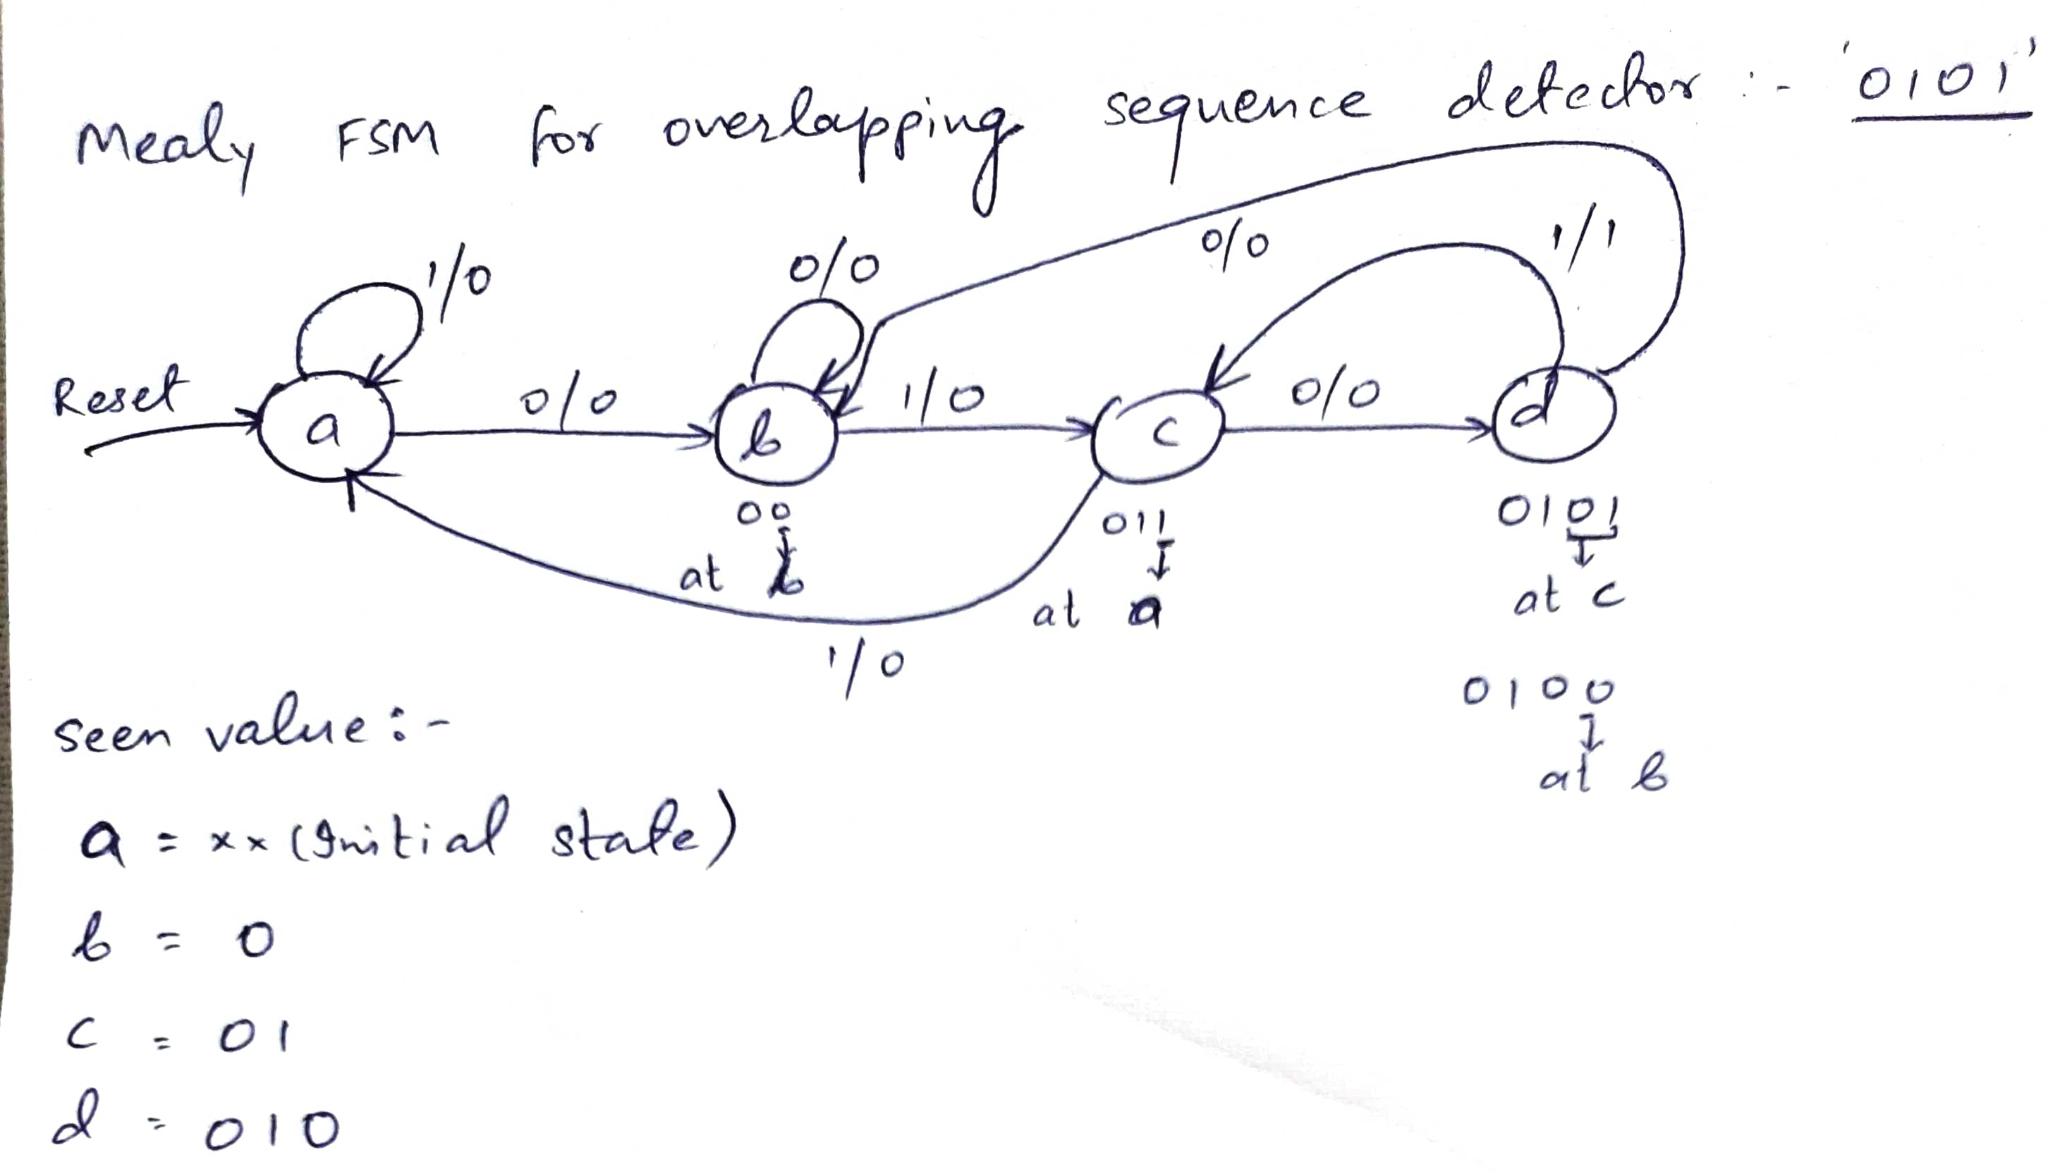 Mealy FSM for overlapping sequence detector :- '0101'
1/0
0/0
0/0
1/1
Reset
a
0/0
b
1/0
c
0/0
d
00
at b
011
at a
0101
at c
1/0
0100
at b
seen value :-
a = xx (Initial state)
b = 0
c = 01
d = 010